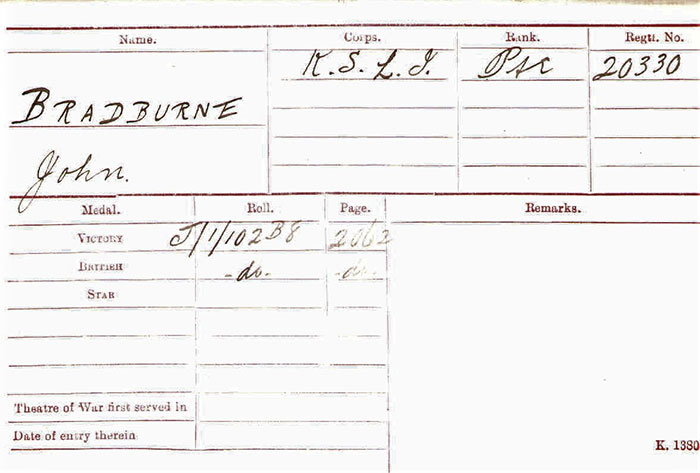 Name. Corps. Rank. Regtl. No.
K.S.L.I. Pte 20330
BRADBURNE
John.
Medal. Roll. Page. Remarks.
VICTORY J/1/102B8 2062
BRITISH -do- -do-
STAR
Theatre of War first served in
Date of entry therein
K. 1380